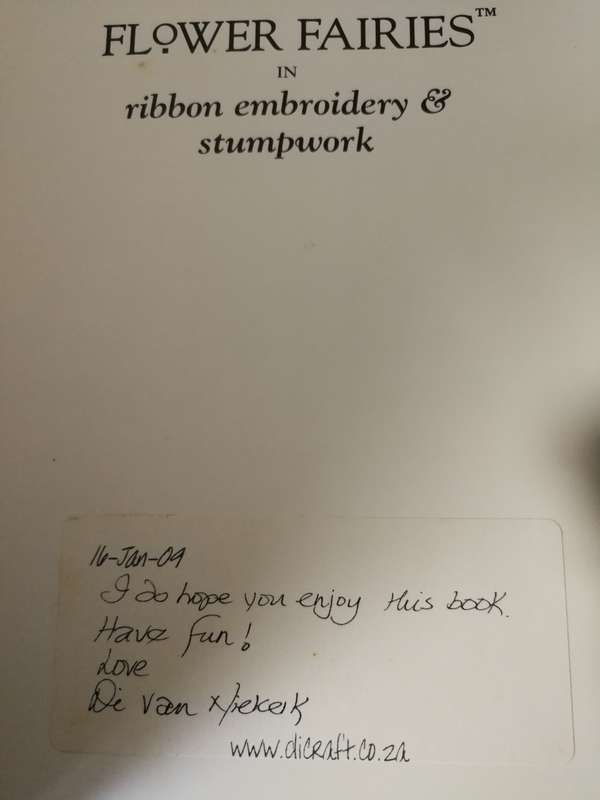 FLOWER FAIRIES™
IN
ribbon embroidery &
stumpwork
16-Jan-09
I do hope you enjoy this book.
Have fun!
Love
Di van Niekerk
www.dicraft.co.za